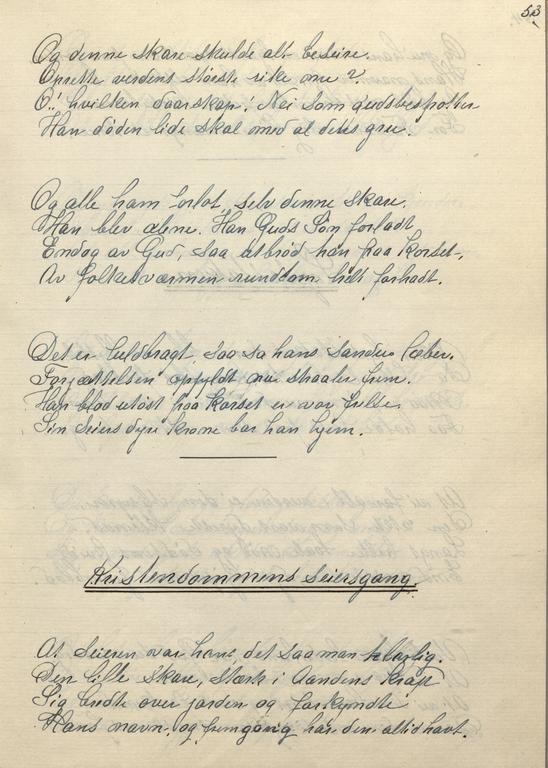 53
Og denne skare skulde alt beseire.
Oprette verdens største rike nu?
O!! hvilken daarskap! Nei som gudsbespotter
Han døden lide skal med al dets gru.
Og alle ham forlot, selv denne skare.
Han blev alene. Han Guds Søn forladt
Endog av Gud, saa utbrød han paa Korset,
Av folkesværmen rundtom helt forhadt.
Det er fuldbragt, saa sa hans sanddru læber.
Forjættelsen opfyldt nu straaler frem.
Han blod utøst paa Korset er vor frelse
Sin seiers dyre krone bar han hjem.
Kristendommens Seiersgang
At seieren var hans, det saa man klarlig.
Den lille skare, stærk i Aandens kraft
Sig bredte over jorden og forkyndte
Hans navn, og fremgang har den altid havt.